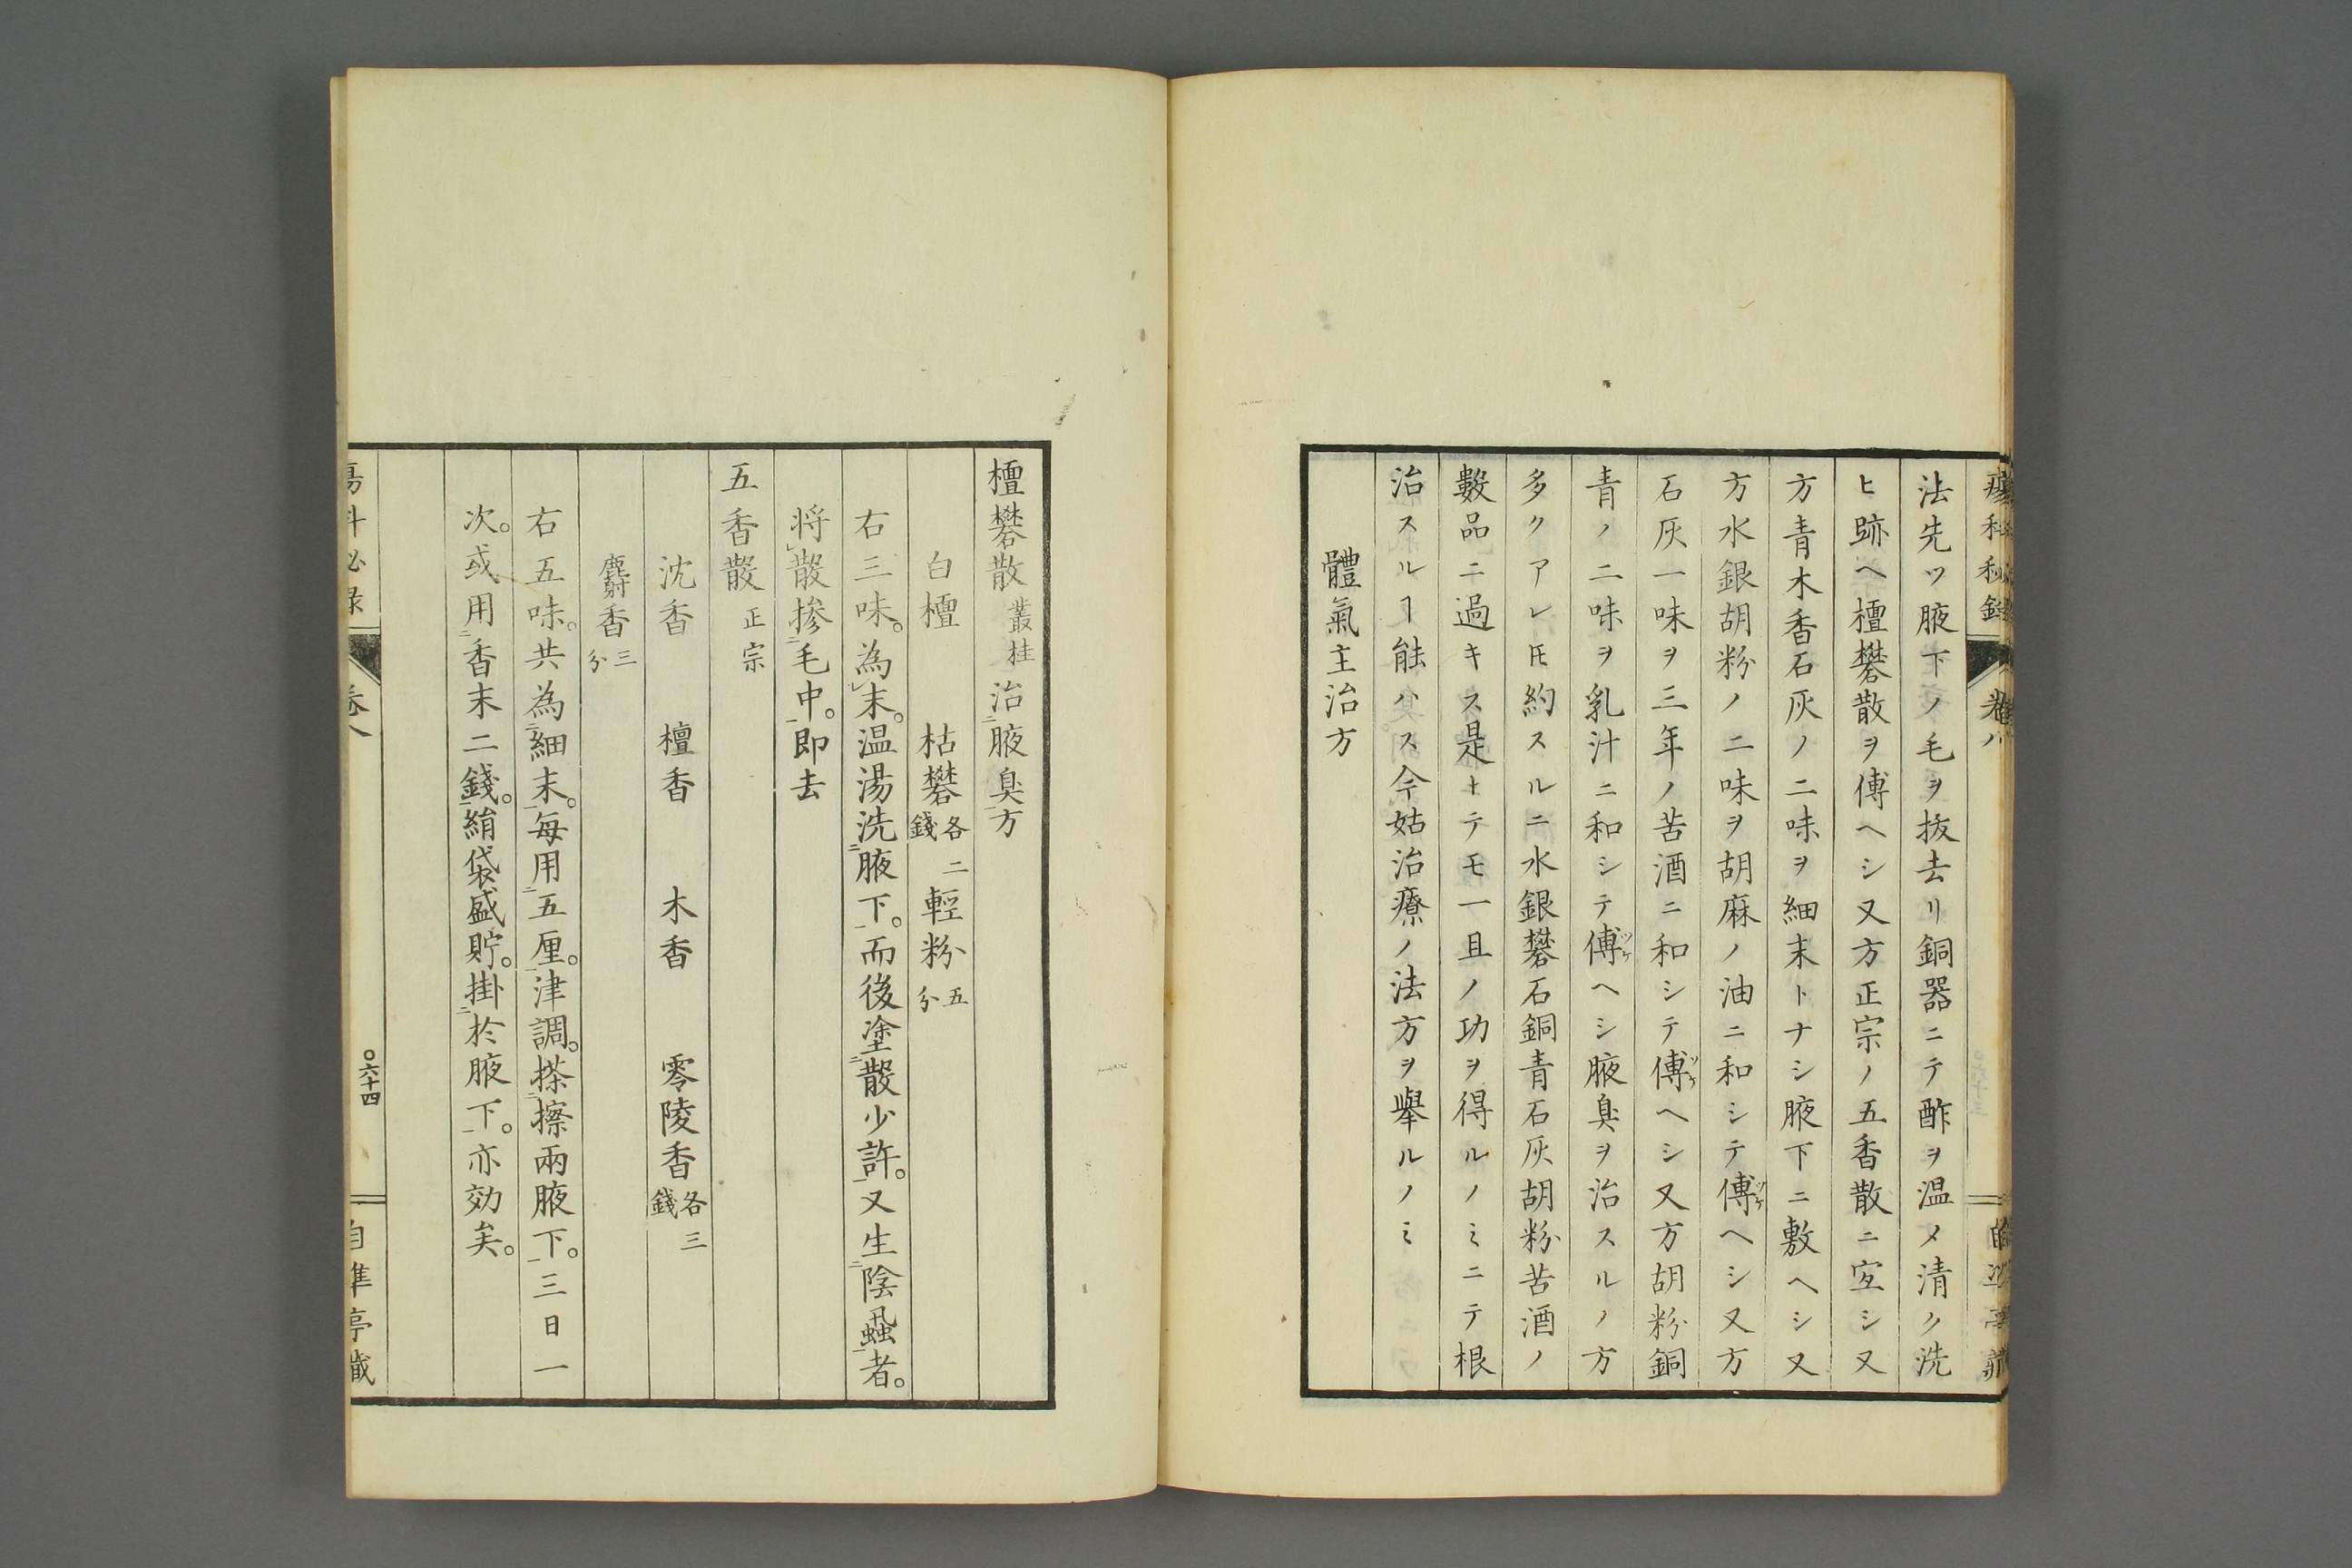 法先ツ腋下ノ毛ヲ抜去リ銅器ニテ酢ヲ温メ清ク洗
ヒ跡ヘ檀礬散ヲ傅ヘシ又方正宗ノ五香散ニ宜シ又
方青木香石灰ノ二味ヲ細末トナシ腋下ニ敷ヘシ又
方水銀胡粉ノ二味ヲ胡麻ノ油ニ和シテ傅ツケヘシ又方
石灰一味ヲ三年ノ苦酒ニ和シテ傅ツケヘシ又方胡粉銅
青ノ二味ヲ乳汁ニ和シテ傅ツケヘシ腋臭ヲ治スルノ方
多クアレ𪜈約スルニ水銀礬石銅青石灰胡粉苦酒ノ
數品ニ過キス是トテモ一且ノ功ヲ得ルノミニテ根
治スルヿ能ハス今姑治療ノ法方ヲ舉ルノミ
體氣主治方
檀礬散 叢桂 治二腋臭一方
白檀 枯礬各二錢 輕粉五分
右三味。為レ末。温湯洗二腋下一。而後塗二散少許一。又生二陰蝨一者。
将レ散掺二毛中一。即去
五香散 正宗
沈香 檀香 木香 零陵香各三錢
麝香三分
右五味。共為二細末一。每用二五厘一。津調。搽二擦兩腋下一。三日一
次。或用二香末二錢一。絹袋盛貯。掛二於腋下一。亦効矣。
卷八
〇六十四